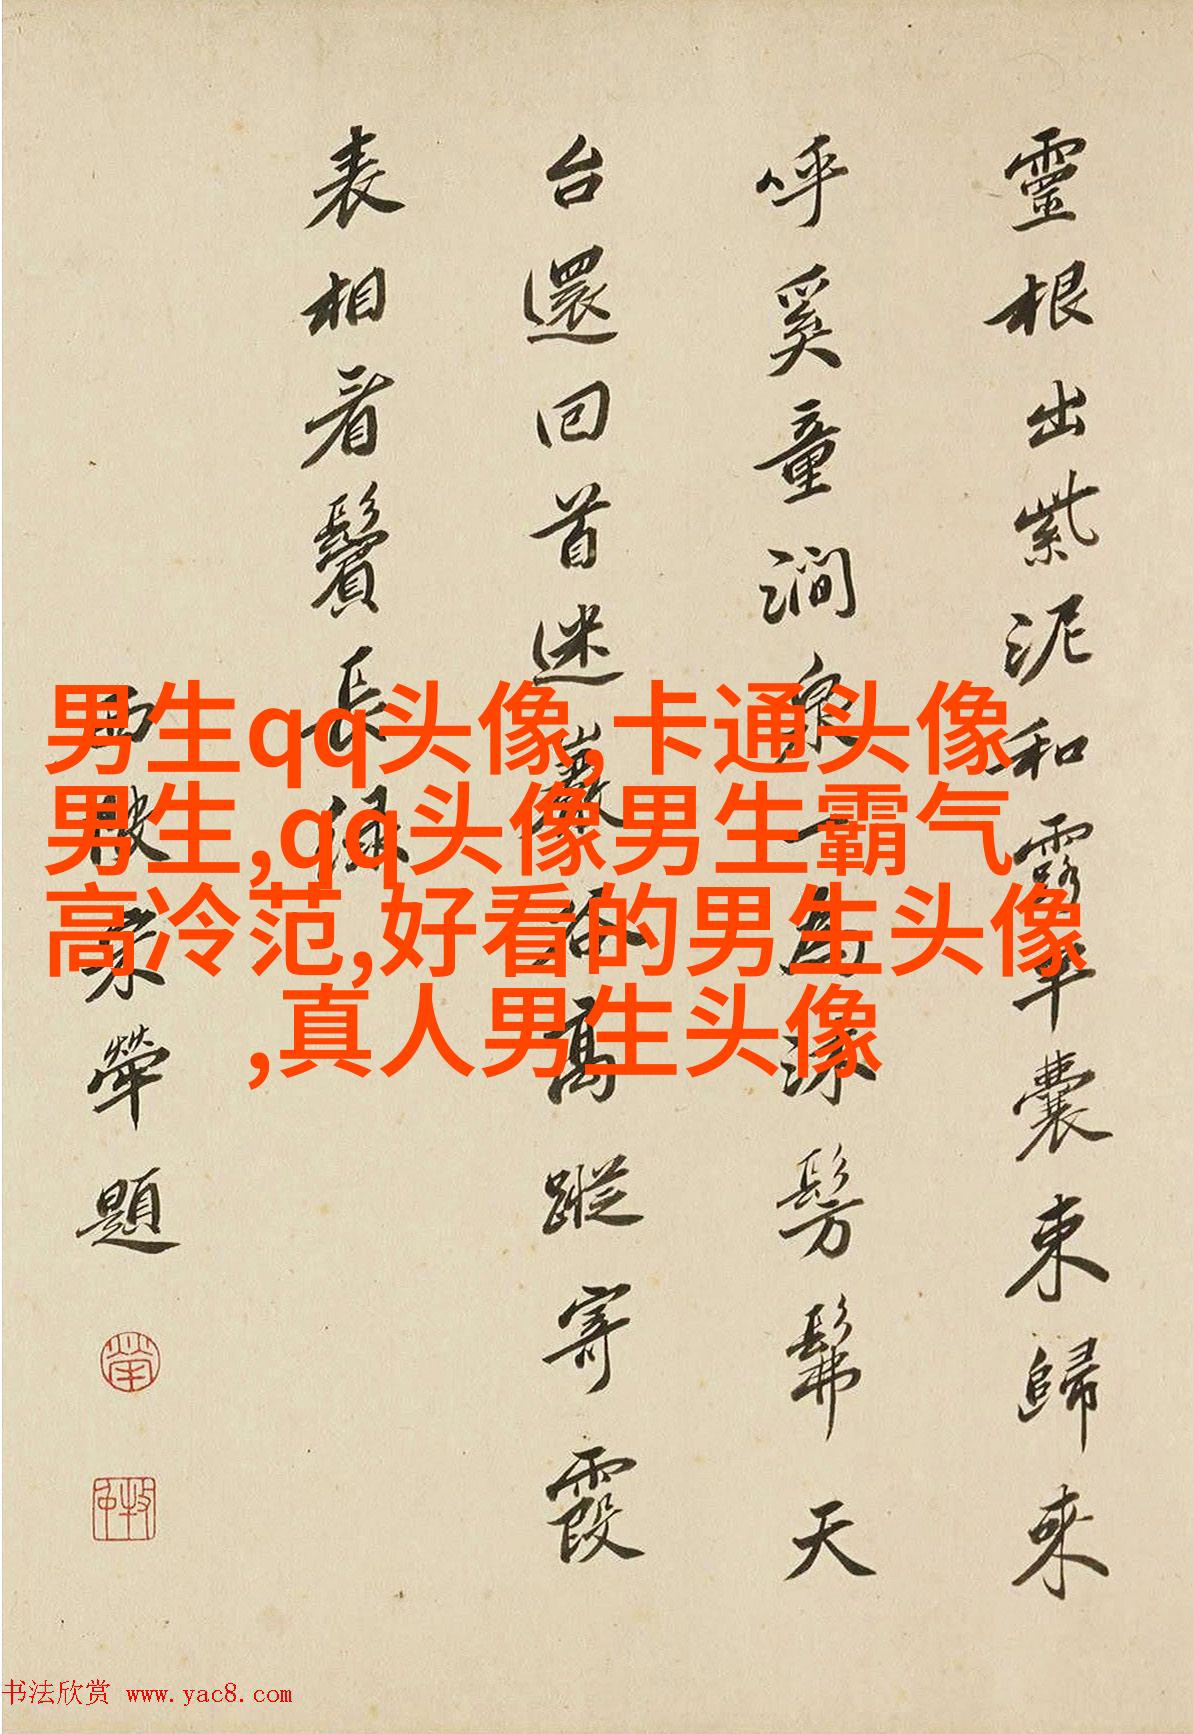 靈根出紫泥和露半囊束歸來
呼奚童澗泉一為沐髣髴天
台還回首迷巖谷高蹤寄霞
表相看鬢長綠
西陂宋犖題
男生qq头像,卡通头像
男生,qq头像男生霸气
高冷范,好看的男生头像
,真人男生头像
书法欣赏 www.yac8.com